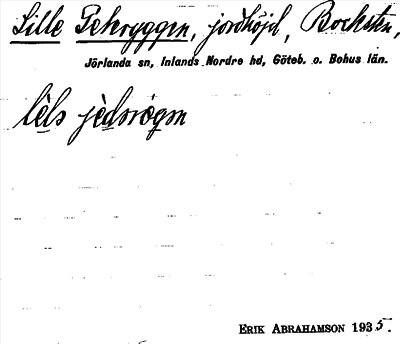 Lille Gekryggen, jordhöjd, Bocksten,
Jörlanda sn, Inlands Nordre hd, Göteb. o. Bohus län.
lêls jèdsrögan
ERIK ABRAHAMSON 1935.